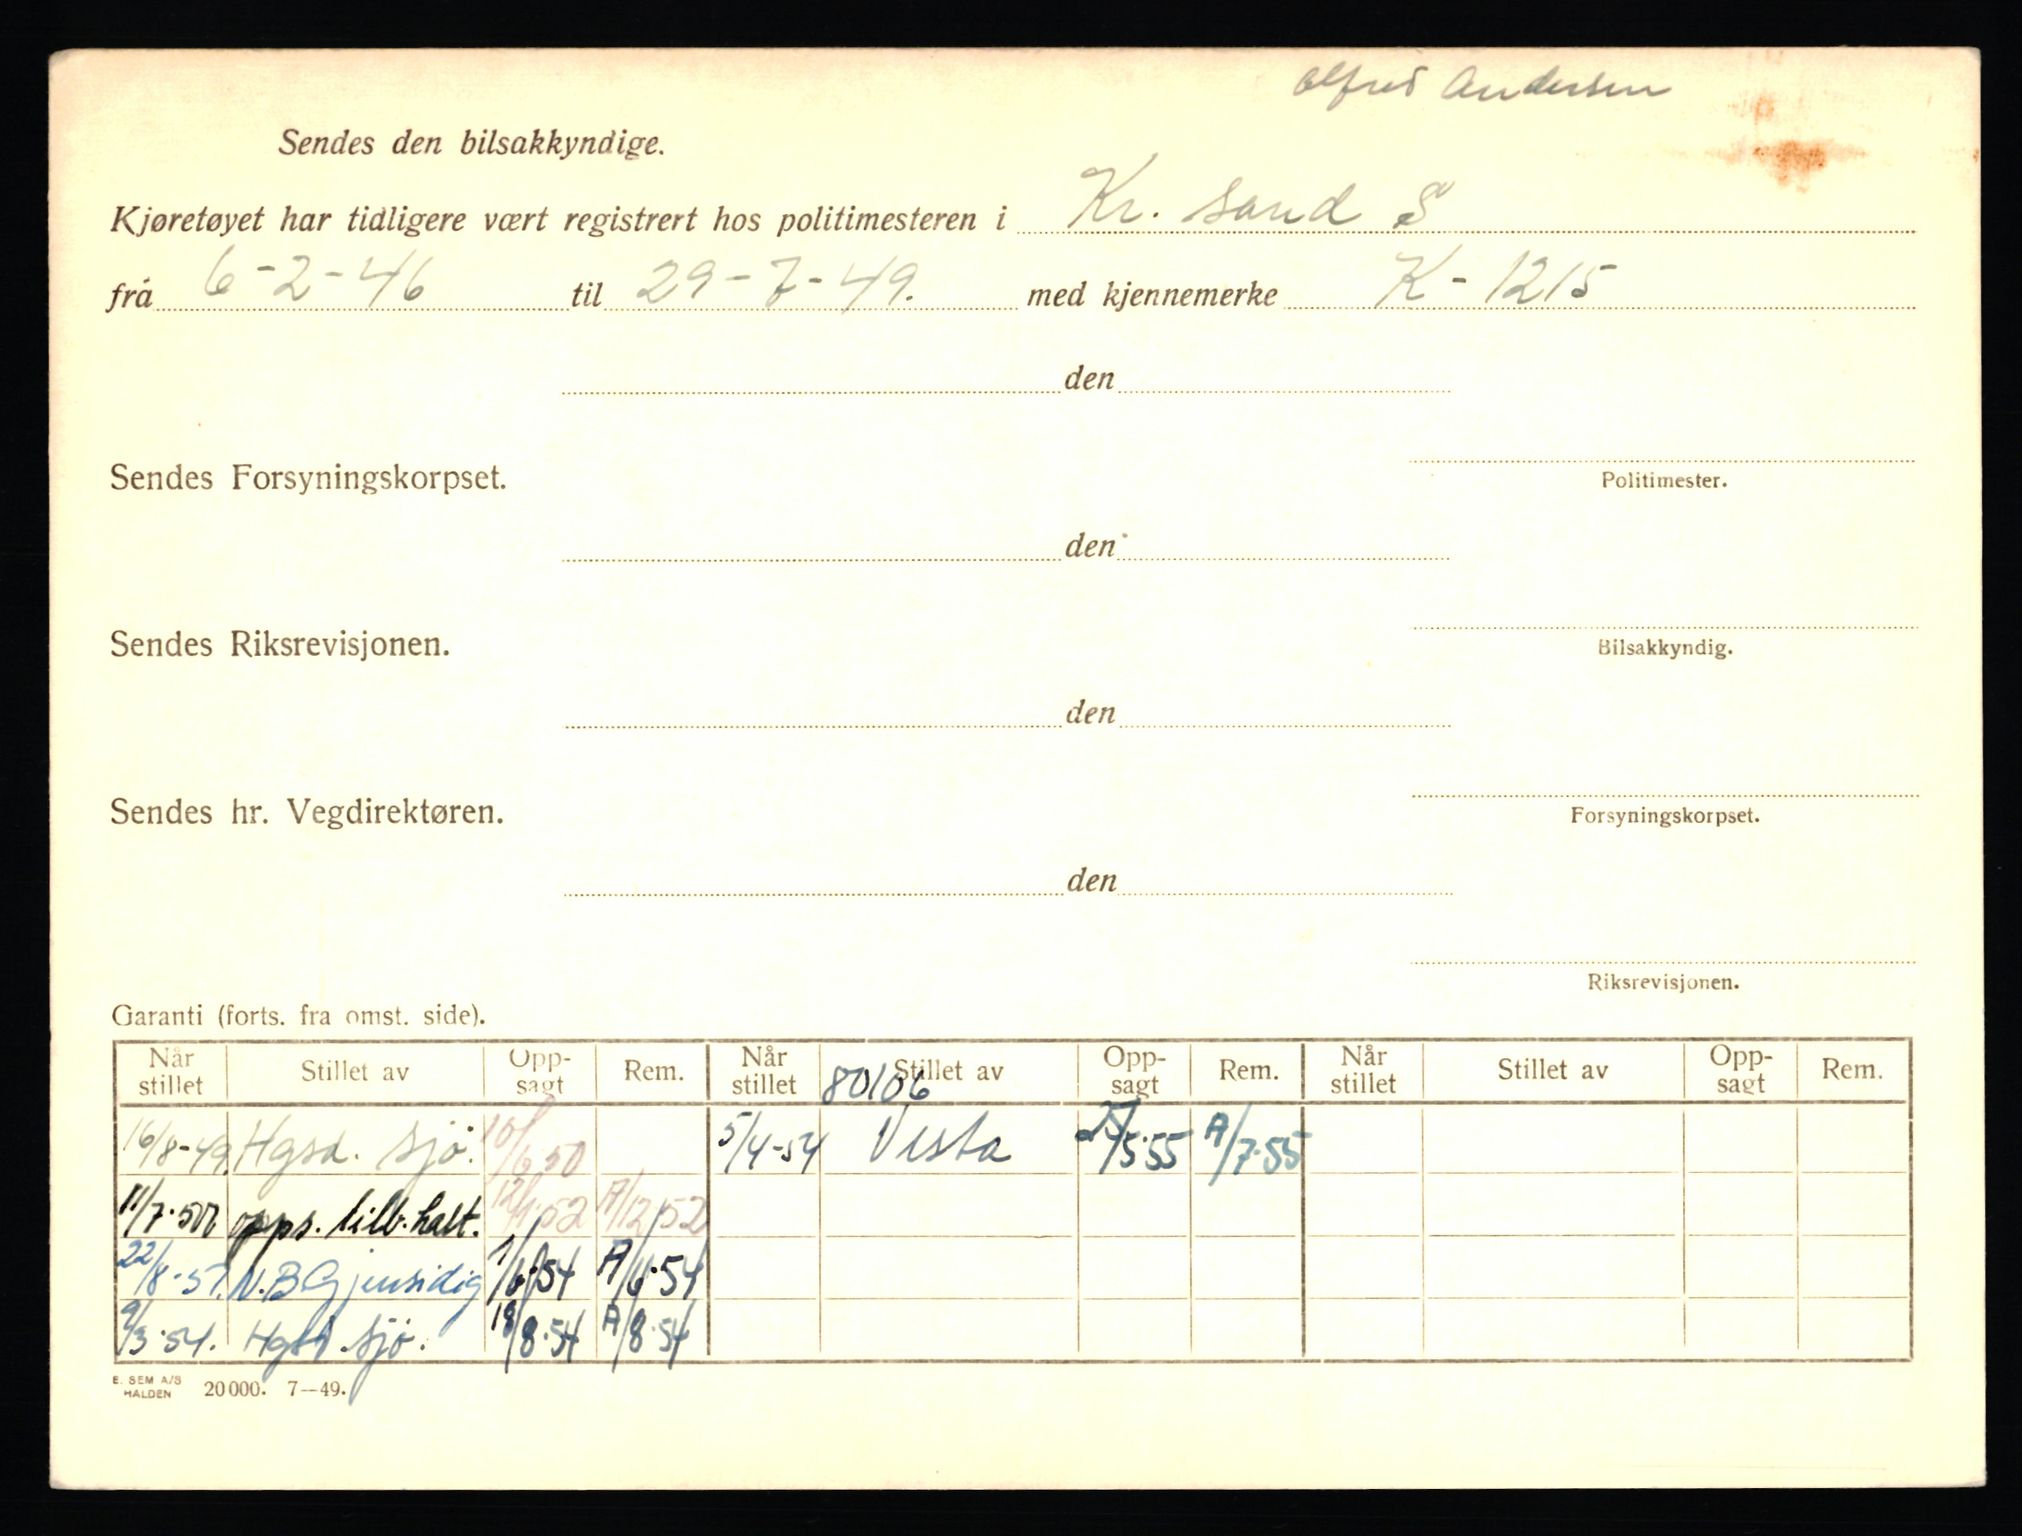 Alfred Andersen
Sendes den bilsakkyndige.
Kjøretøyet har tidligere vært registrert hos politimesteren i Kr. sand S
frå 6-2-46 til 29-7-49. med kjennemerke K-1215
den
Sendes Forsyningskorpset.
Politimester.
den
Sendes Riksrevisjonen.
Bilsakkyndig.
den
Sendes hr. Vegdirektøren.
Forsyningskorpset.
den
Riksrevisjonen.
Garanti (forts. fra omst. side).
Når stillet Stillet av Opp-sagt Rem. Når stillet Stillet av Opp-sagt Rem. Når stillet Stillet av Opp-sagt Rem.
80106
16/8-49 Hgsd. sjø. 10/6 50 5/4-54 Vesta 5.55 A/7.55
11/7.50 opps. tilb. kalt. 12/ 52 A/12 52
22/8-5 N.B Gjensidig 1/6.54 A/6.54
9/3.54. Hgsd. sjø. 18/8.54 A/8.54
E. SEM A/S HALDEN 20 000. 7—49.